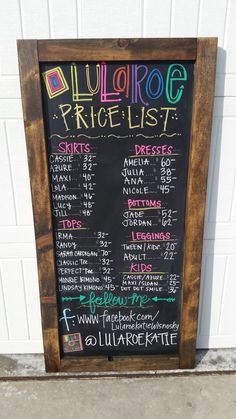 LULAROE
PRICE LIST
SKIRTS
CASSIE 32-
AZURE 32-
MAXI 40-
LOLA 42-
MADISON 46-
LUCY 48-
JILL 48-
TOPS
IRMA 33-
RANDY 32-
SARAH CARDIGAN 70-
CLASSIC TEE 32-
PERFECT TEE 32-
MONROE KIMONO 45-
LINDSAY KIMONO 45-
DRESSES
AMELIA 60-
JULIA 38-
ANA 55-
NICOLE 45-
BOTTOMS
JADE 52-
JORDAN 62-
LEGGINGS
TWEEN/KIDS 20-
ADULT 22-
KIDS
CASSIE/AZURE 22-
MAXI/SLOAN 25-
DOT DOT SMILE 36-
follow me
f: www.facebook.com/
@LULAROEKATIE